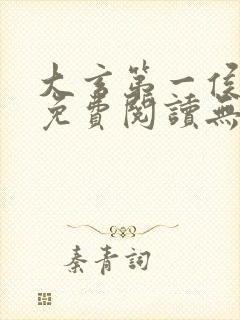 大言第一侯
免費閱讀無
秦青詞